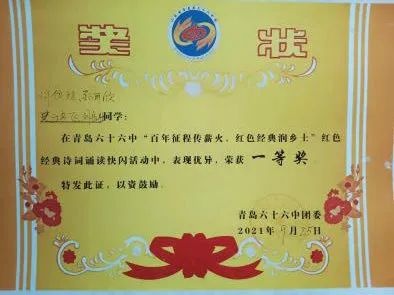 奖 状
同学：
在青岛六十六中“百年征程传薪火，红色经典润乡土”红色
经典诗词诵读快闪活动中，表现优异，荣获 一等奖
特发此证，以资鼓励。
青岛六十六中团委
2021年9月25日